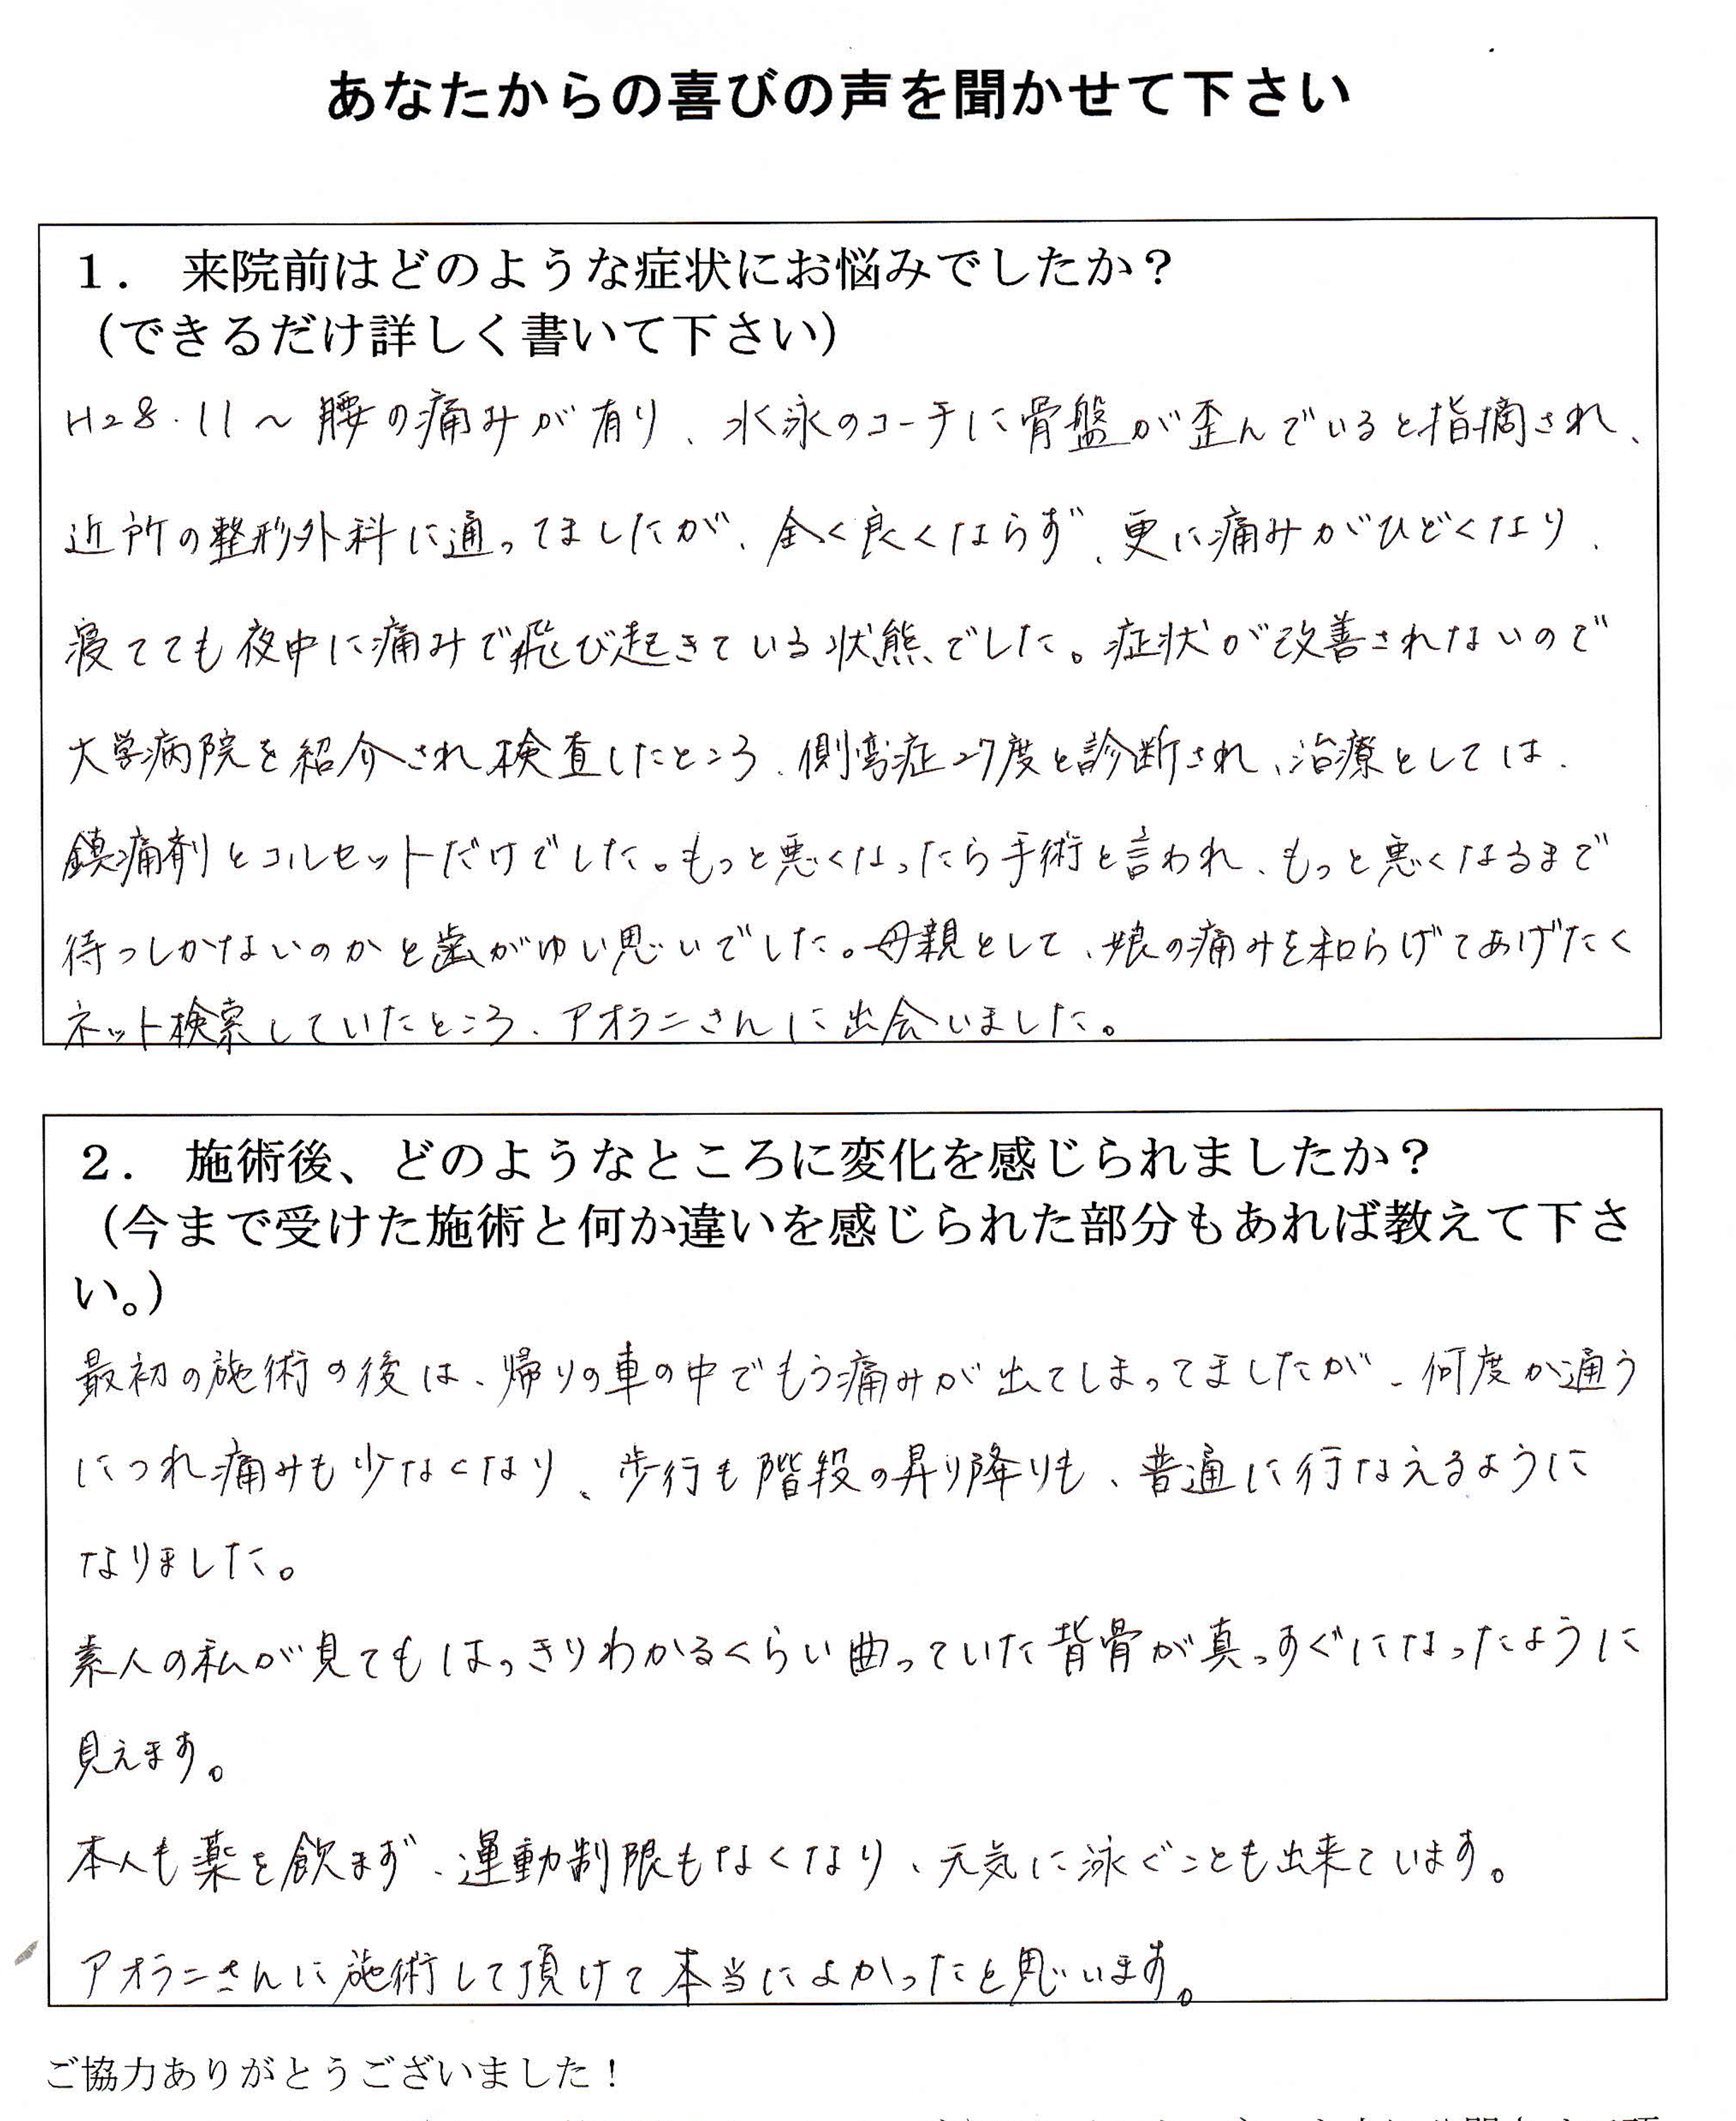 あなたからの喜びの声を聞かせて下さい
１． 来院前はどのような症状にお悩みでしたか？
（できるだけ詳しく書いて下さい）
H28.11～腰の痛みが有り、水泳のコーチに骨盤が歪んでいると指摘され、
近所の整形外科に通ってましたが、全く良くならず、更に痛みがひどくなり、
寝てても夜中に痛みで飛び起きている状態でした。症状が改善されないので
大学病院を紹介され検査したところ、側弯症27度と診断され、治療としては、
鎮痛剤とコルセットだけでした。もっと悪くなったら手術と言われ、もっと悪くなるまで
待つしかないのかと歯がゆい思いでした。母親として、娘の痛みを和らげてあげたく
ネット検索していたところ、アオラニさんに出会いました。
２． 施術後、どのようなところに変化を感じられましたか？
（今まで受けた施術と何か違いを感じられた部分もあれば教えて下さ
い。）
最初の施術の後は、帰りの車の中でもう痛みが出てしまってましたが、何度か通う
につれ痛みも少なくなり、歩行も階段の昇り降りも、普通に行なえるように
なりました。
素人の私が見てもはっきりわかるくらい曲っていた背骨が真っすぐになったように
見えます。
本人も薬を飲まず、運動制限もなくなり、元気に泳ぐことも出来ています。
アオラニさんに施術して頂けて本当によかったと思います。
ご協力ありがとうございました！